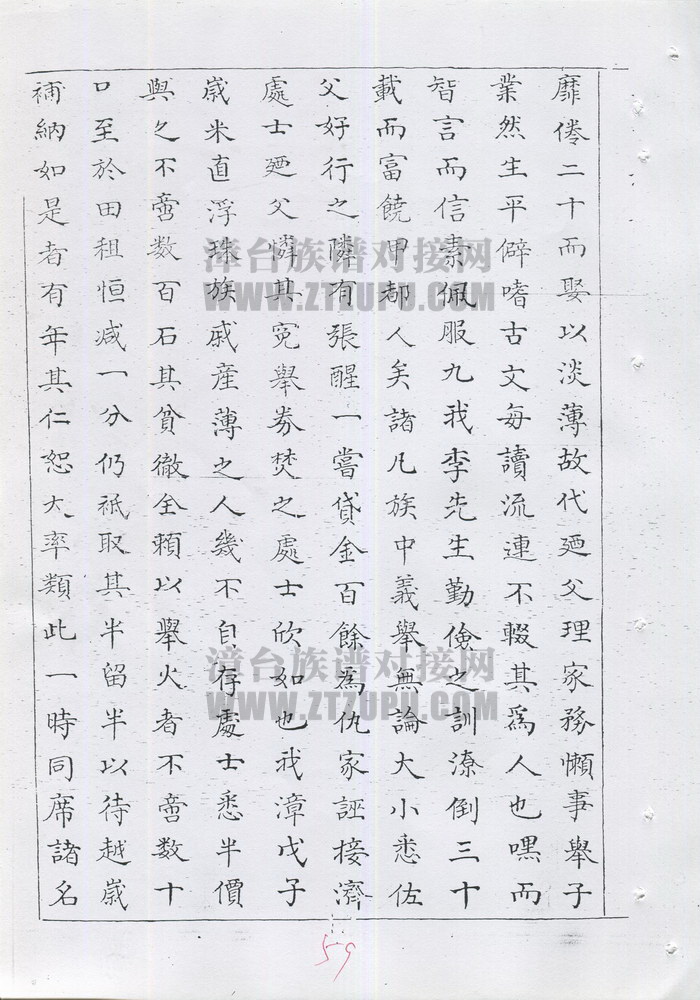 靡倦二十而娶以淡薄故代廼父理家務懶事舉子
業然生平僻嗜古文每讀流連不輟其為人也嘿而
智言而信素佩服九我李先生勤儉之訓潦倒三十
載而富饒甲郡人矣諸凡族中義舉無論大小悉佐
父好行之隣有張醒一嘗貸金百餘為仇家誣接濟
處士廼父憐其冤舉券焚之處士欣如也我漳戊子
歲米直浮珠族戚產薄之人幾不自存處士悉半價
與之不啻数百石其貧徹全賴以舉火者不啻数十
口至於田租恒減一分仍祇取其半留半以待越歲
補納如是者有年其仁恕大率類此一時同席諸名
漳台族谱对接网
WWW.ZTZUPU.COM
漳台族谱对接网
WWW.ZTZUPU.COM
59